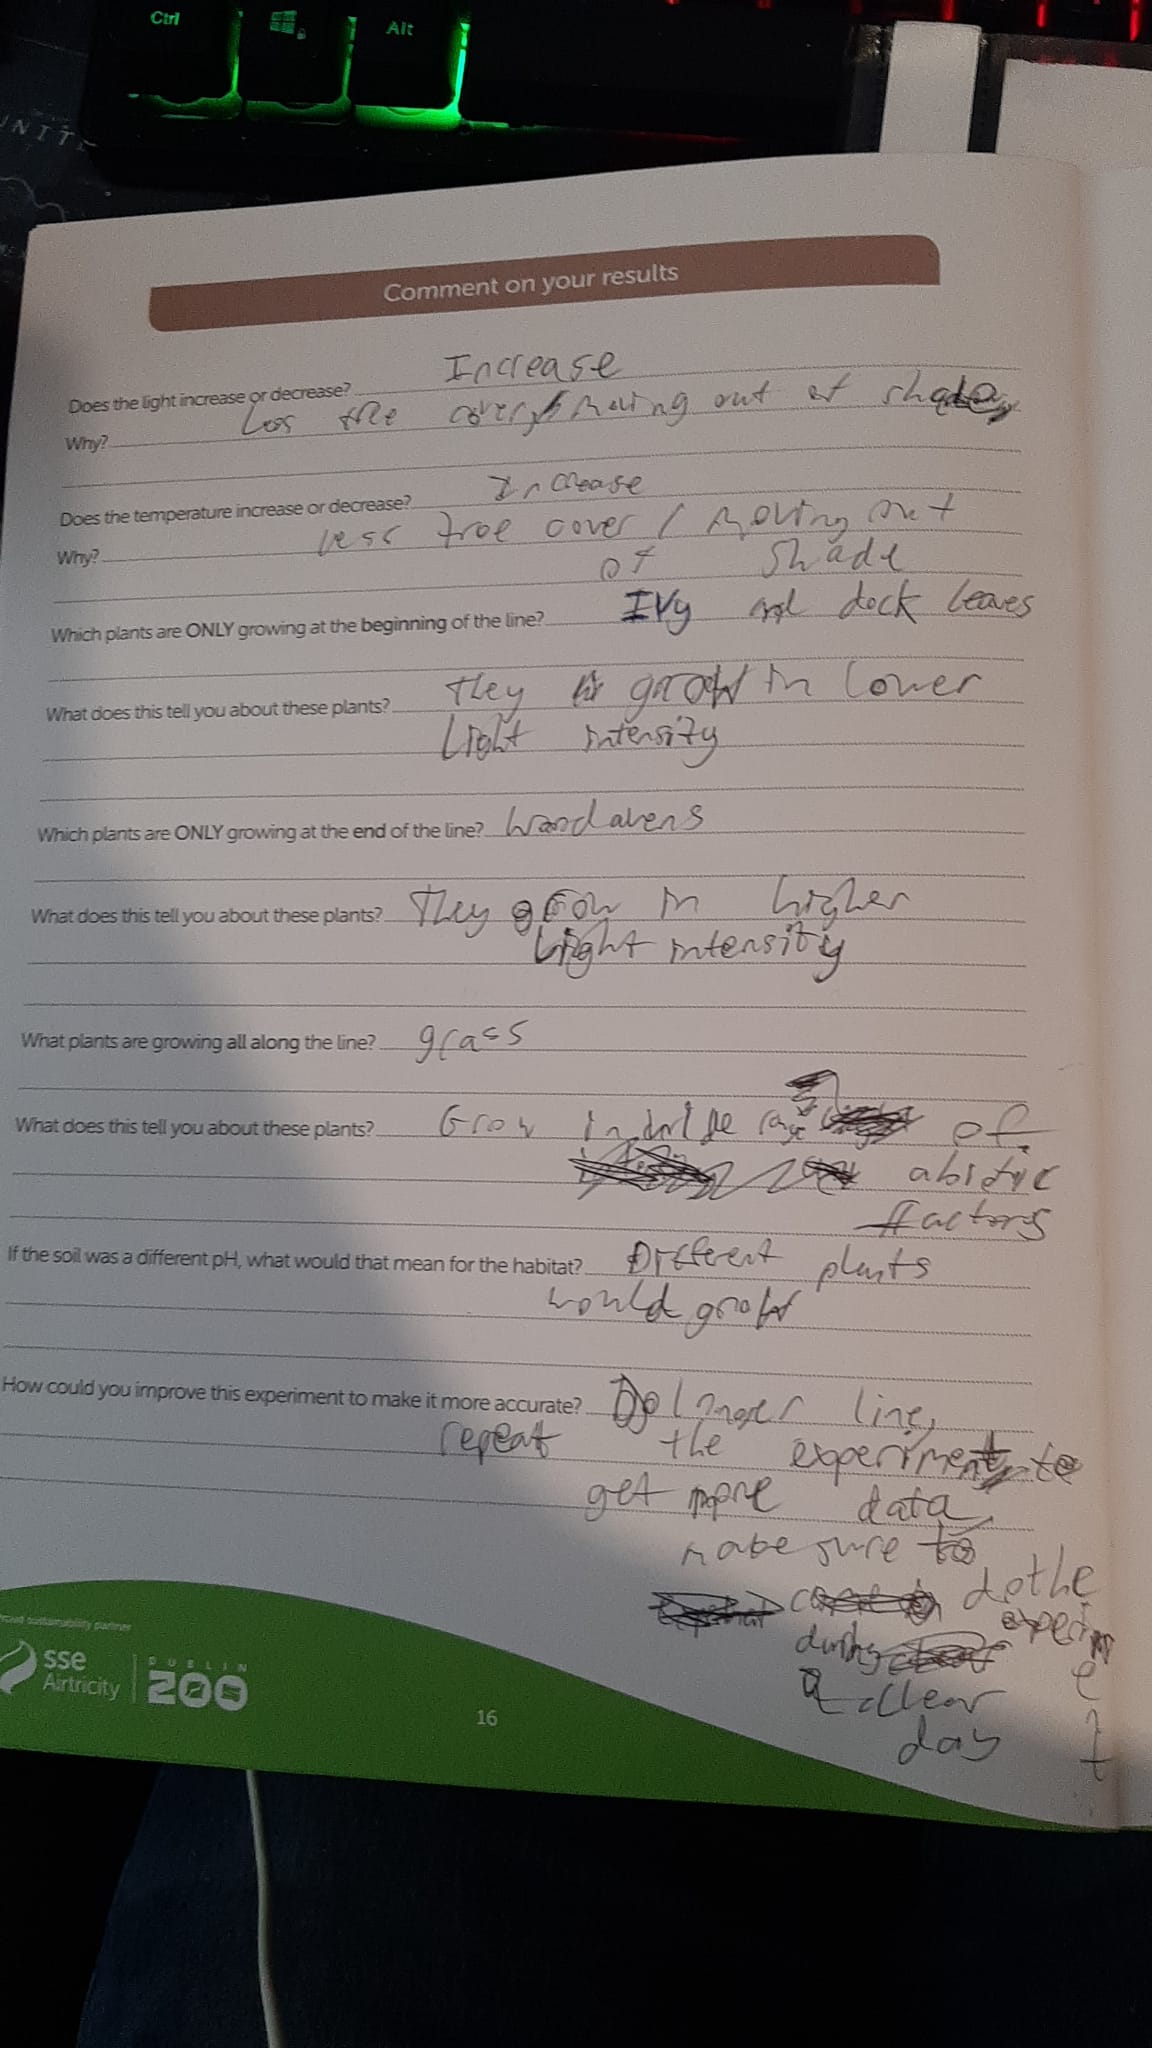 Ctrl
Alt
Comment on your results
Does the light increase or decrease? Increase
Why? Less tree cover / moving out of shade
Does the temperature increase or decrease? Increase
Why? Less tree cover / moving out
of shade
Which plants are ONLY growing at the beginning of the line? Ivy and dock leaves
What does this tell you about these plants? They grow in lower
light intensity
Which plants are ONLY growing at the end of the line? Wood avens
What does this tell you about these plants? They grow in higher
light intensity
What plants are growing all along the line? grass
What does this tell you about these plants? Grow in wide range of
abiotic
factors
If the soil was a different pH, what would that mean for the habitat? Different plants
would grow
How could you improve this experiment to make it more accurate? Do longer line,
repeat the experiment to
get more data,
make sure to
do the
experiment
during
a clear
day
sustainability partner
sse
Airtricity
DUBLIN
ZOO
16